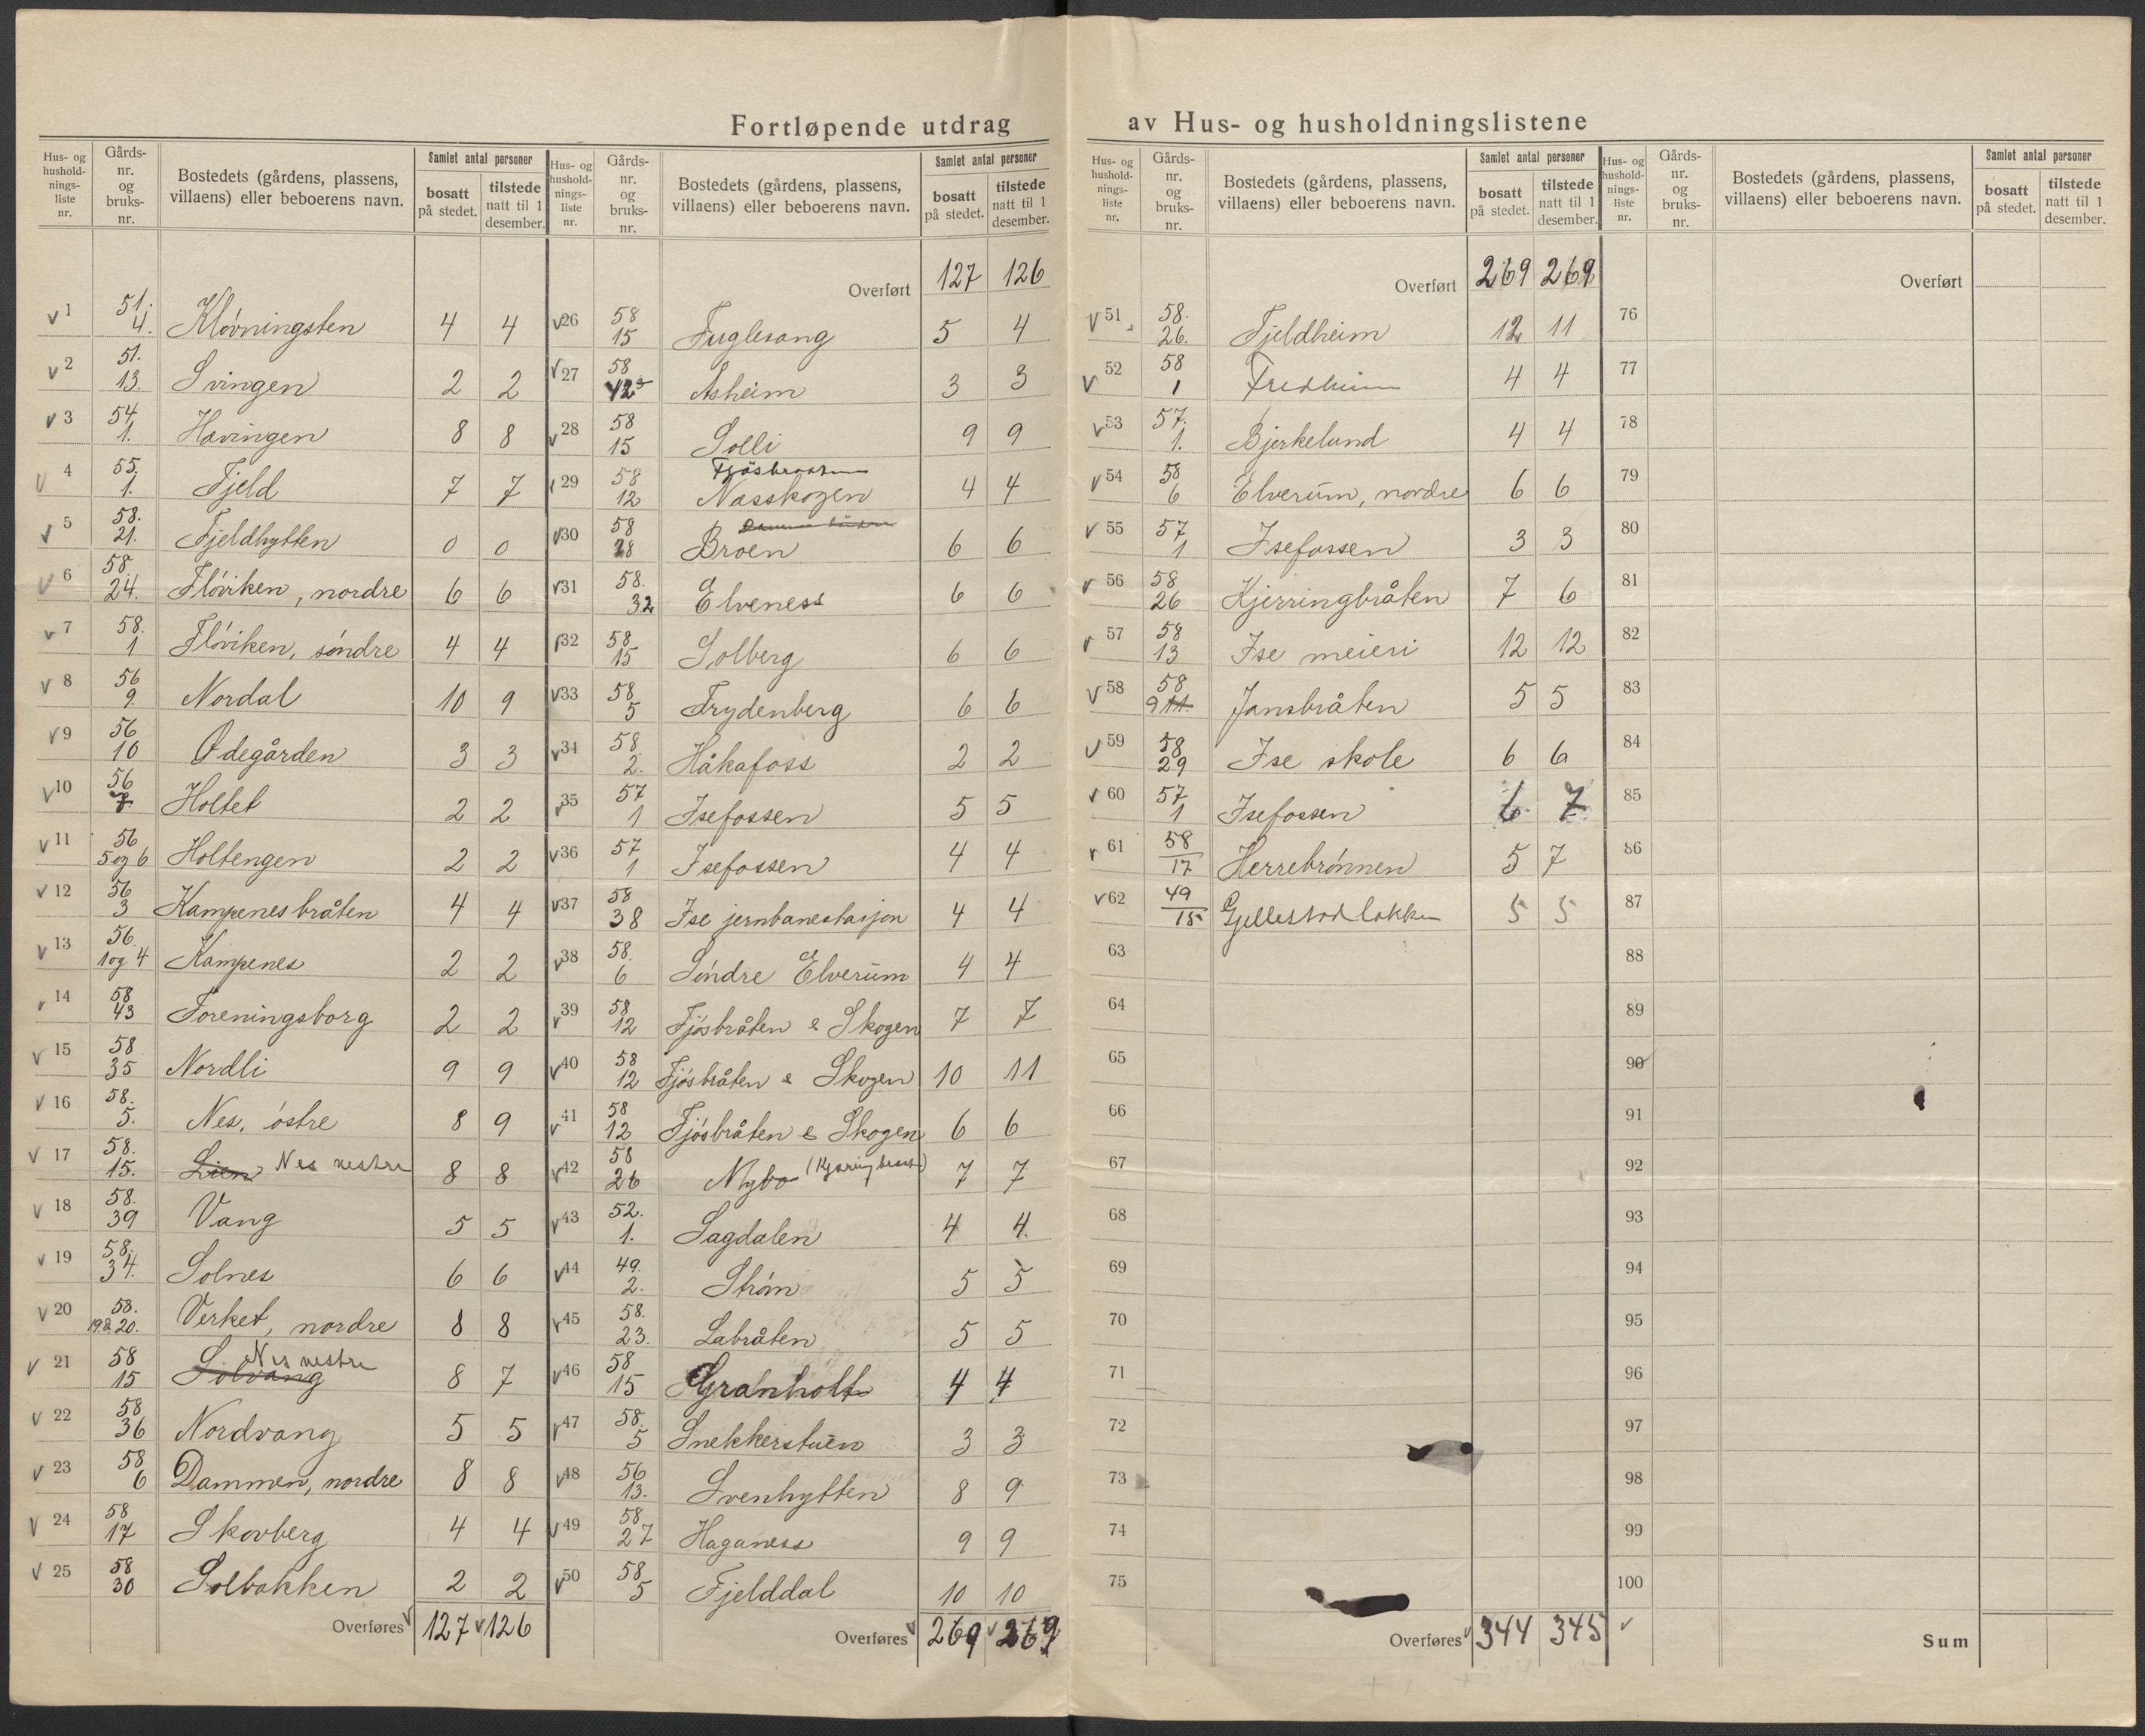 Fortløpende utdrag av Hus- og husholdningslistene
Hus- og husholdningsliste nr. | Gårdsnr. og bruksnr. | Bostedets (gårdens, plassens, villaens) eller beboerens navn. | Samlet antal personer: bosatt på stedet. | tilstede natt til 1 desember.
1 51. 4. Kløvningsten 4 4
2 51. 13. Svingen 2 2
3 54. 1. Havingen 8 8
4 55. 1. Fjeld 7 7
5 58. 21. Fjeldhytten 0 0
6 58. 24. Fløviken, nordre 6 6
7 58. 1 Fløviken, søndre 4 4
8 56 9. Nordal 10 9
9 56 10 Ødegården 3 3
10 56 7. Holtet 2 2
11 56 5 og 6 Holtengen 2 2
12 56 3 Kampenesbråten 4 4
13 56. 1 og 4 Kampenes 2 2
14 58 43 Foreningsborg 2 2
15 58 35 Nordli 9 9
16 58. 5. Nes, østre 8 9
17 58. 15. Lien Nes vestre 8 8
18 58. 39 Vang 5 5
19 58. 34. Solnes 6 6
20 58. 19 & 20. Verket, nordre 8 8
21 58 15 Solvang Nes vestre 8 7
22 58 36 Nordvang 5 5
23 58 6 Dammen, nordre 8 8
24 58 17 Skovberg 4 4
25 58 30 Solbakken 2 2
Overføres 127 126
Hus- og husholdningsliste nr. | Gårdsnr. og bruksnr. | Bostedets (gårdens, plassens, villaens) eller beboerens navn. | Samlet antal personer: bosatt på stedet. | tilstede natt til 1 desember.
Overført 127 126
26 58 15 Fuglesang 5 4
27 58 Åsheim 3 3
28 58 15 Solli 9 9
29 58 12 Fjøsbraaten Næsskogen 4 4
30 58 28 Broen 6 6
31 58. 32 Elveness 6 6
32 58 15 Solberg 6 6
33 58 5 Frydenberg 6 6
34 58 2. Håkafoss 2 2
35 57 1 Isefossen 5 5
36 57 1 Isefossen 4 4
37 58 38 Ise jernbanestasjon 4 4
38 58. 6 Søndre Elverum 4 4
39 58 12 Fjøsbråten e Skogen 7 7
40 58 12 Fjøsbråten e Skogen 10 11
41 58 12 Fjøsbråten e Skogen 6 6
42 58 26 Nybo 7 7
43 52. 1. Sagdalen 4 4.
44 49. 2. Strøm 5 5
45 58. 23. Labråten 5 5
46 58 15 Granholt 4 4
47 58. 5 Snekkerstuen 3 3
48 56 13. Svenhytten 8 9
49 58 27 Haganess 9 9
50 58. 5 Fjelddal 10 10
Overføres 269 269
Hus- og husholdningsliste nr. | Gårdsnr. og bruksnr. | Bostedets (gårdens, plassens, villaens) eller beboerens navn. | Samlet antal personer: bosatt på stedet. | tilstede natt til 1 desember.
Overført 269 269
51 58. 26. Fjeldheim 12 11
52 58 1 Fredheim 4 4
53 57. 1. Bjerkelund 4 4
54 58 6 Elverum, nordre 6 6
55 57 1 Isefossen 3 3
56 58 26 Kjerringbråten 7 6
57 58 13 Ise meieri 12 12
58 58 9 11. Jansbråten 5 5
59 58 29 Ise skole 6 6
60 57 1 Isefossen 6 7
61 58 17 Herrebrønnen 5 7
62 49 15 Gjellestadløkken 5 5
63
64
65
66
67
68
69
70
71
72
73
74
75
Overføres 344 345
Hus- og husholdningsliste nr. | Gårdsnr. og bruksnr. | Bostedets (gårdens, plassens, villaens) eller beboerens navn. | Samlet antal personer: bosatt på stedet. | tilstede natt til 1 desember.
Overført
76
77
78
79
80
81
82
83
84
85
86
87
88
89
90
91
92
93
94
95
96
97
98
99
100
Sum